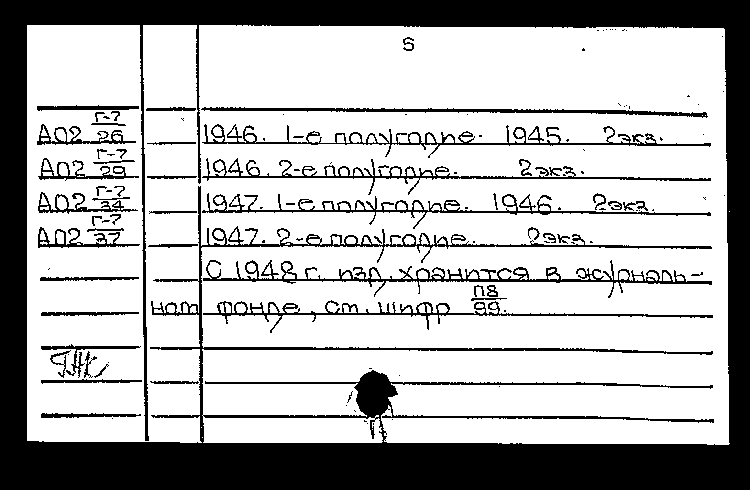 5
А02 Г-7/26 1946. 1-е полугодие. 1945. 2экз.
А02 Г-7/29 1946. 2-е полугодие. 2экз.
А02 Г-7/34 1947. 1-е полугодие. 1946. 2экз.
А02 Г-7/37 1947. 2-е полугодие. 2экз.
С 1948 г. изд. хранится в журналь-
ном фонде, см. шифр П8/99.